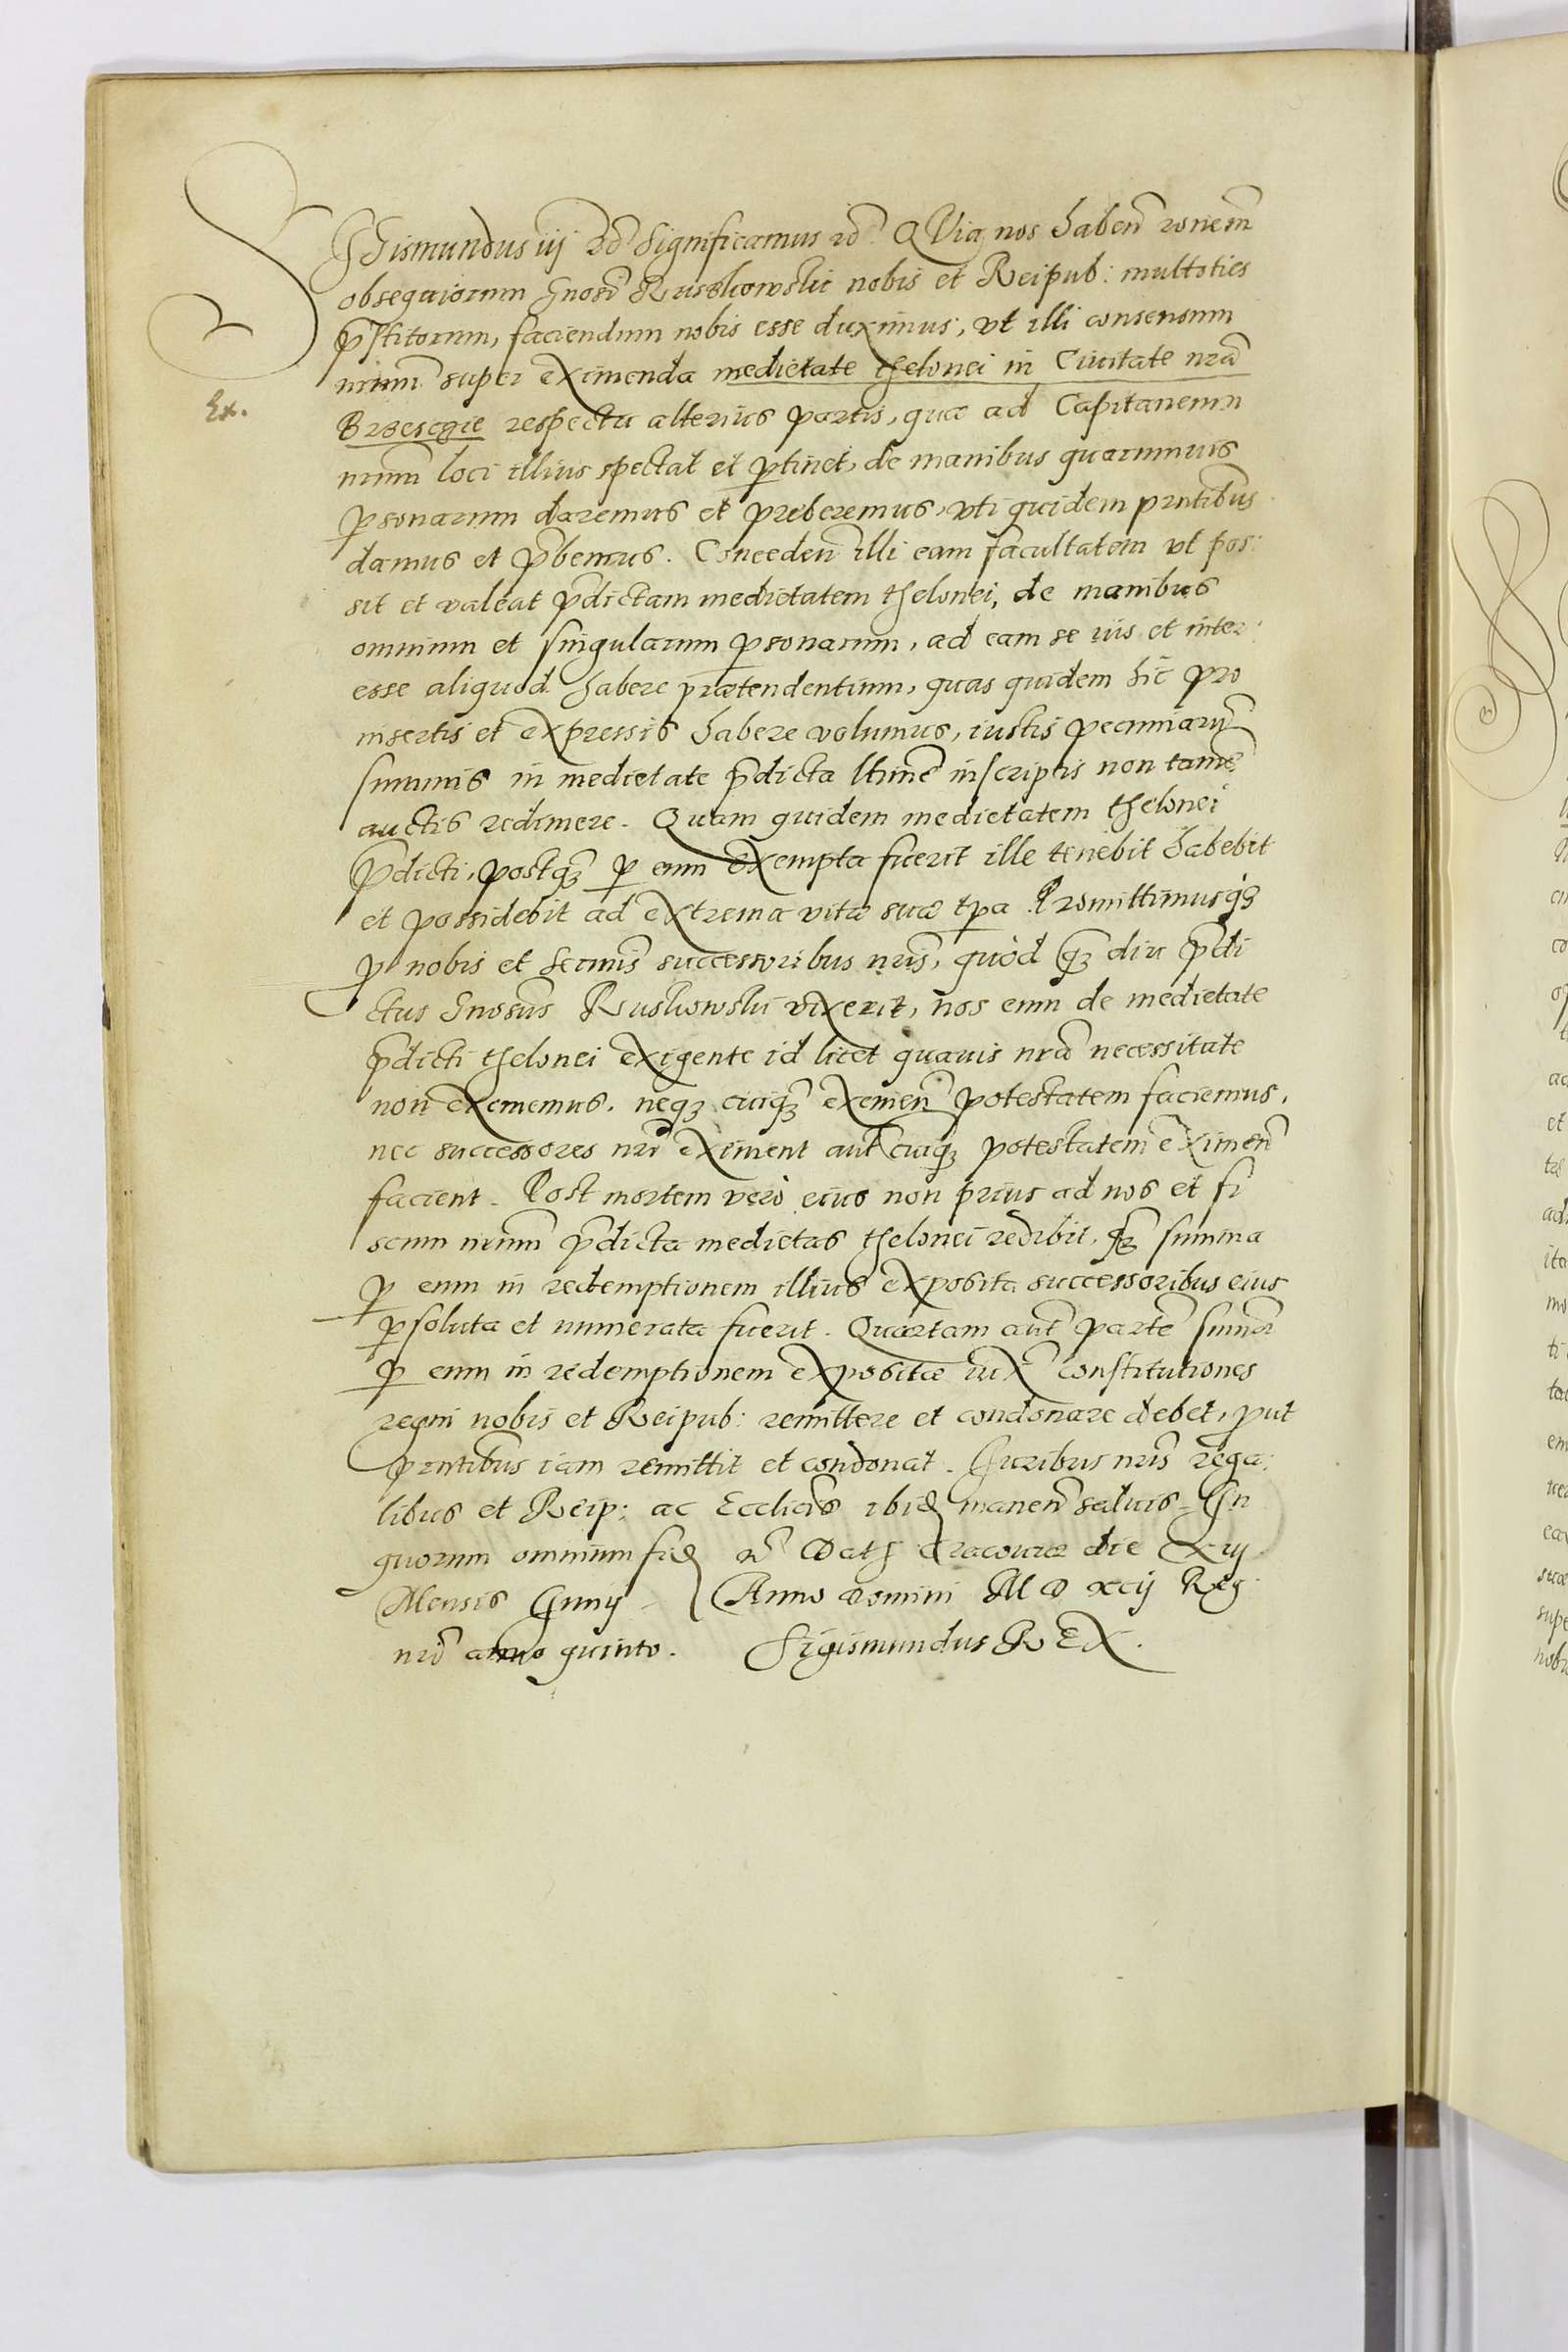 SIgismundus iij etc̃ Significamus etc̃. QVia nos haben̄ ronem̃
obsequiorum Gnosi Ruskowski nobis et Reipub: multoties
p̃stitorum, faciendum nobis esse duximus, vt illi consensum
nrum̃ super eximenda medietate thelonei in Ciuitate nrã
Ex.
Brzescgie respectu alterius partis, quæ ad Capitaneum
nrum̃ loci illius spectat et ꝑtinet, de manibus quarumuis
ꝑsonarum daremus et preberemus, vti quidem pñtibus
damus et p̃bemus. Conceden̄ illi eam facultatem vt pos:
sit et valeat p̃dictam medietatem thelonei, de manibus
omnium et singularum ꝑsonarum, ad eam se ius et inter:
esse aliquod habere prætendentium, quas quidem hic̃ pro
insertis et expressis habere volumus, iustis pecuniarũ
summis in medietate p̃dicta ltimẽ inscriptis non tamẽ
auctis redimere. Quam quidem medietatem thelonei
p̃dicti, postqꝫ ꝑ eum exempta fuerit ille tenebit habebit
et possidebit ad extrema vitæ suæ tp̃a. Promittimusqꝫ
ꝓ nobis et Sermis̃ successoribus nris̃, quòd qꝫ̃ diu p̃di
ctus Gnosus̃ Ruskowski vixerit, nos eum de medietate
p̃dicti thelonei exigente id licet quauis nrã necessitate
non eximemus, neqꝫ cuiqꝫ̃ eximen̄ potestatem faciemus,
nec successores nri̇̃ eximent aut cuiqꝫ̃ potestatem eximen̄
facient. Post mortem verò eius non prius ad nos et fi
scum nrum̃ p̃dicta medietas thelonei redibit, qꝫ̃ summa
ꝑ eum in redemptionem illius exposita successoribus eius
ꝑsoluta et numerata fuerit. Quartam aut̃ partẽ summæ
ꝑ eum in redemptionem expositæ iux̃ constitutiones
regni nobis et Reipub: remittere et condonare debet, ꝓut
pñtibus iam remittit et condonat. Iuribus nris̃ rega:
libus et Reip: ac Ecclicis̃ ibid manen̄ saluis. In
quorum omnium fid etc̃ Dat Cracouiæ die Xij
Mensis Iunij Anno Domini M D xcij Reg
nri̇̃ anno quinto. Sigismundus REX.